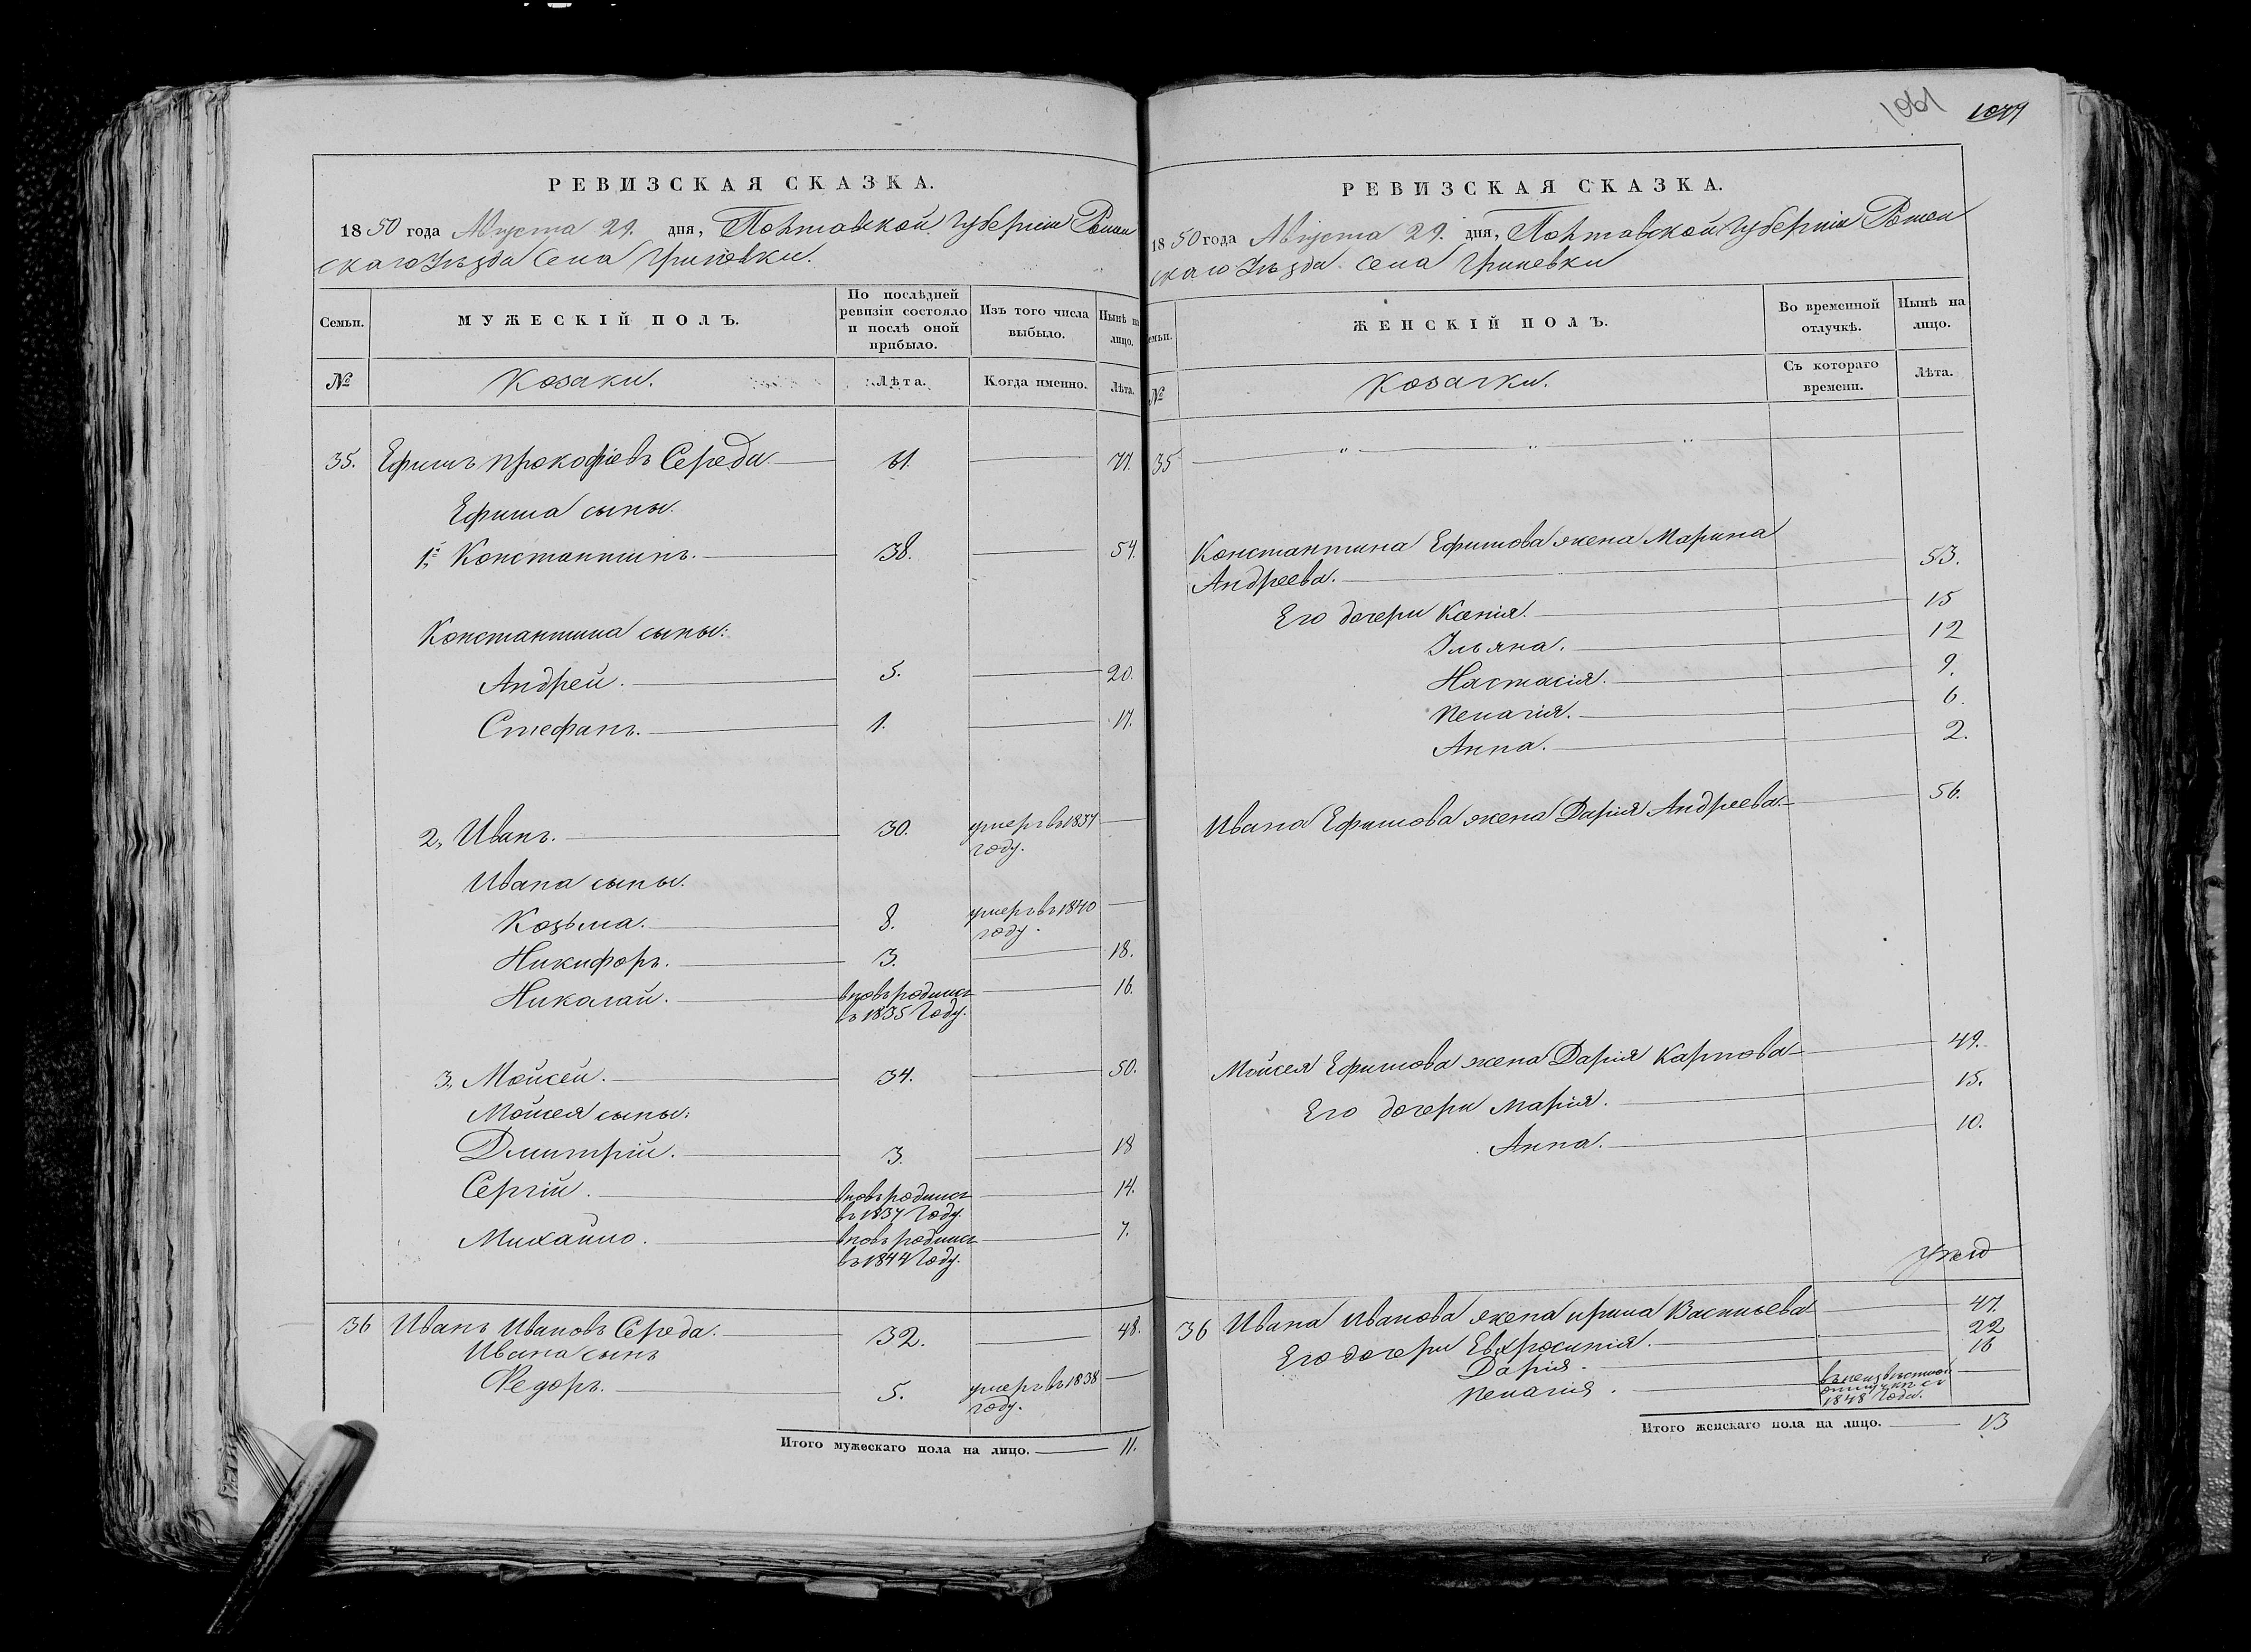 РЕВИЗСКАЯ СКАЗКА.
1850 года Августа 29. дня, Полтавской Губерніи Ромен
скаго Уѣзда Села Гриневки.
Семьи.
МУЖЕСКІЙ ПОЛЪ.
По послѣдней ревизіи состояло и послѣ оной прибыло.
Изъ того числа выбыло.
Нынѣ на лицо.
№
Козаки.
Лѣта.
Когда именно.
Лѣта.
35. Ефимъ Прокофіевъ Середа 61. 77.
Ефима сыны.
1й Константинъ. 38. 54.
Константина сыны:
Андрей. 5. 20.
Стефанъ. 1. 17.
2, Иванъ. 30. умеръ въ 1837
году.
Ивана сыны.
Козьма. 8. умеръ въ 1840
году.
Никифоръ. 3. 18.
Николай. вновь родился 16.
въ 1835 Году.
3, Мойсей. 34. 50.
Мойсея сыны:
Дмитрій. 3. 18
Сергій. вновь родился 14.
въ 1837 Году.
Михайло. вновь родился 7.
въ 1844 Году.
36 Иванъ Ивановъ Середа. 32. 48.
Ивана сынъ
Федоръ. 5. умеръ въ 1838
году.
Итого мужескаго пола на лицо. 11.
1061
РЕВИЗСКАЯ СКАЗКА.
1850 года Августа 29. дня, Полтавской Губерніи Ромен
скаго Уѣзда Села Гриневки
Семьи.
ЖЕНСКІЙ ПОЛЪ.
Во временной отлучкѣ.
Нынѣ на лицо.
№
Козачки.
Съ котораго времени.
Лѣта.
35 " " "
Константина Ефимова жена Марина
Андреева. 53.
Его дочери Ксенія. 15
Ульяна. 12
Настасія. 9.
Пелагія. 6.
Анна. 2.
Ивана Ефимова жена Дарія Андреева 56.
Мойсея Ефимова жена Дарія Карпова 49.
Его дочери Марія. 15.
Анна. 10.
36 Ивана Иванова жена Ирина Васильева 47.
Его дочери Евхросинія. 22
Дарія. 16
Пелагія. въ неизвѣстной
отлучкѣ съ
1848 Года.
Итого женскаго пола на лицо. 13